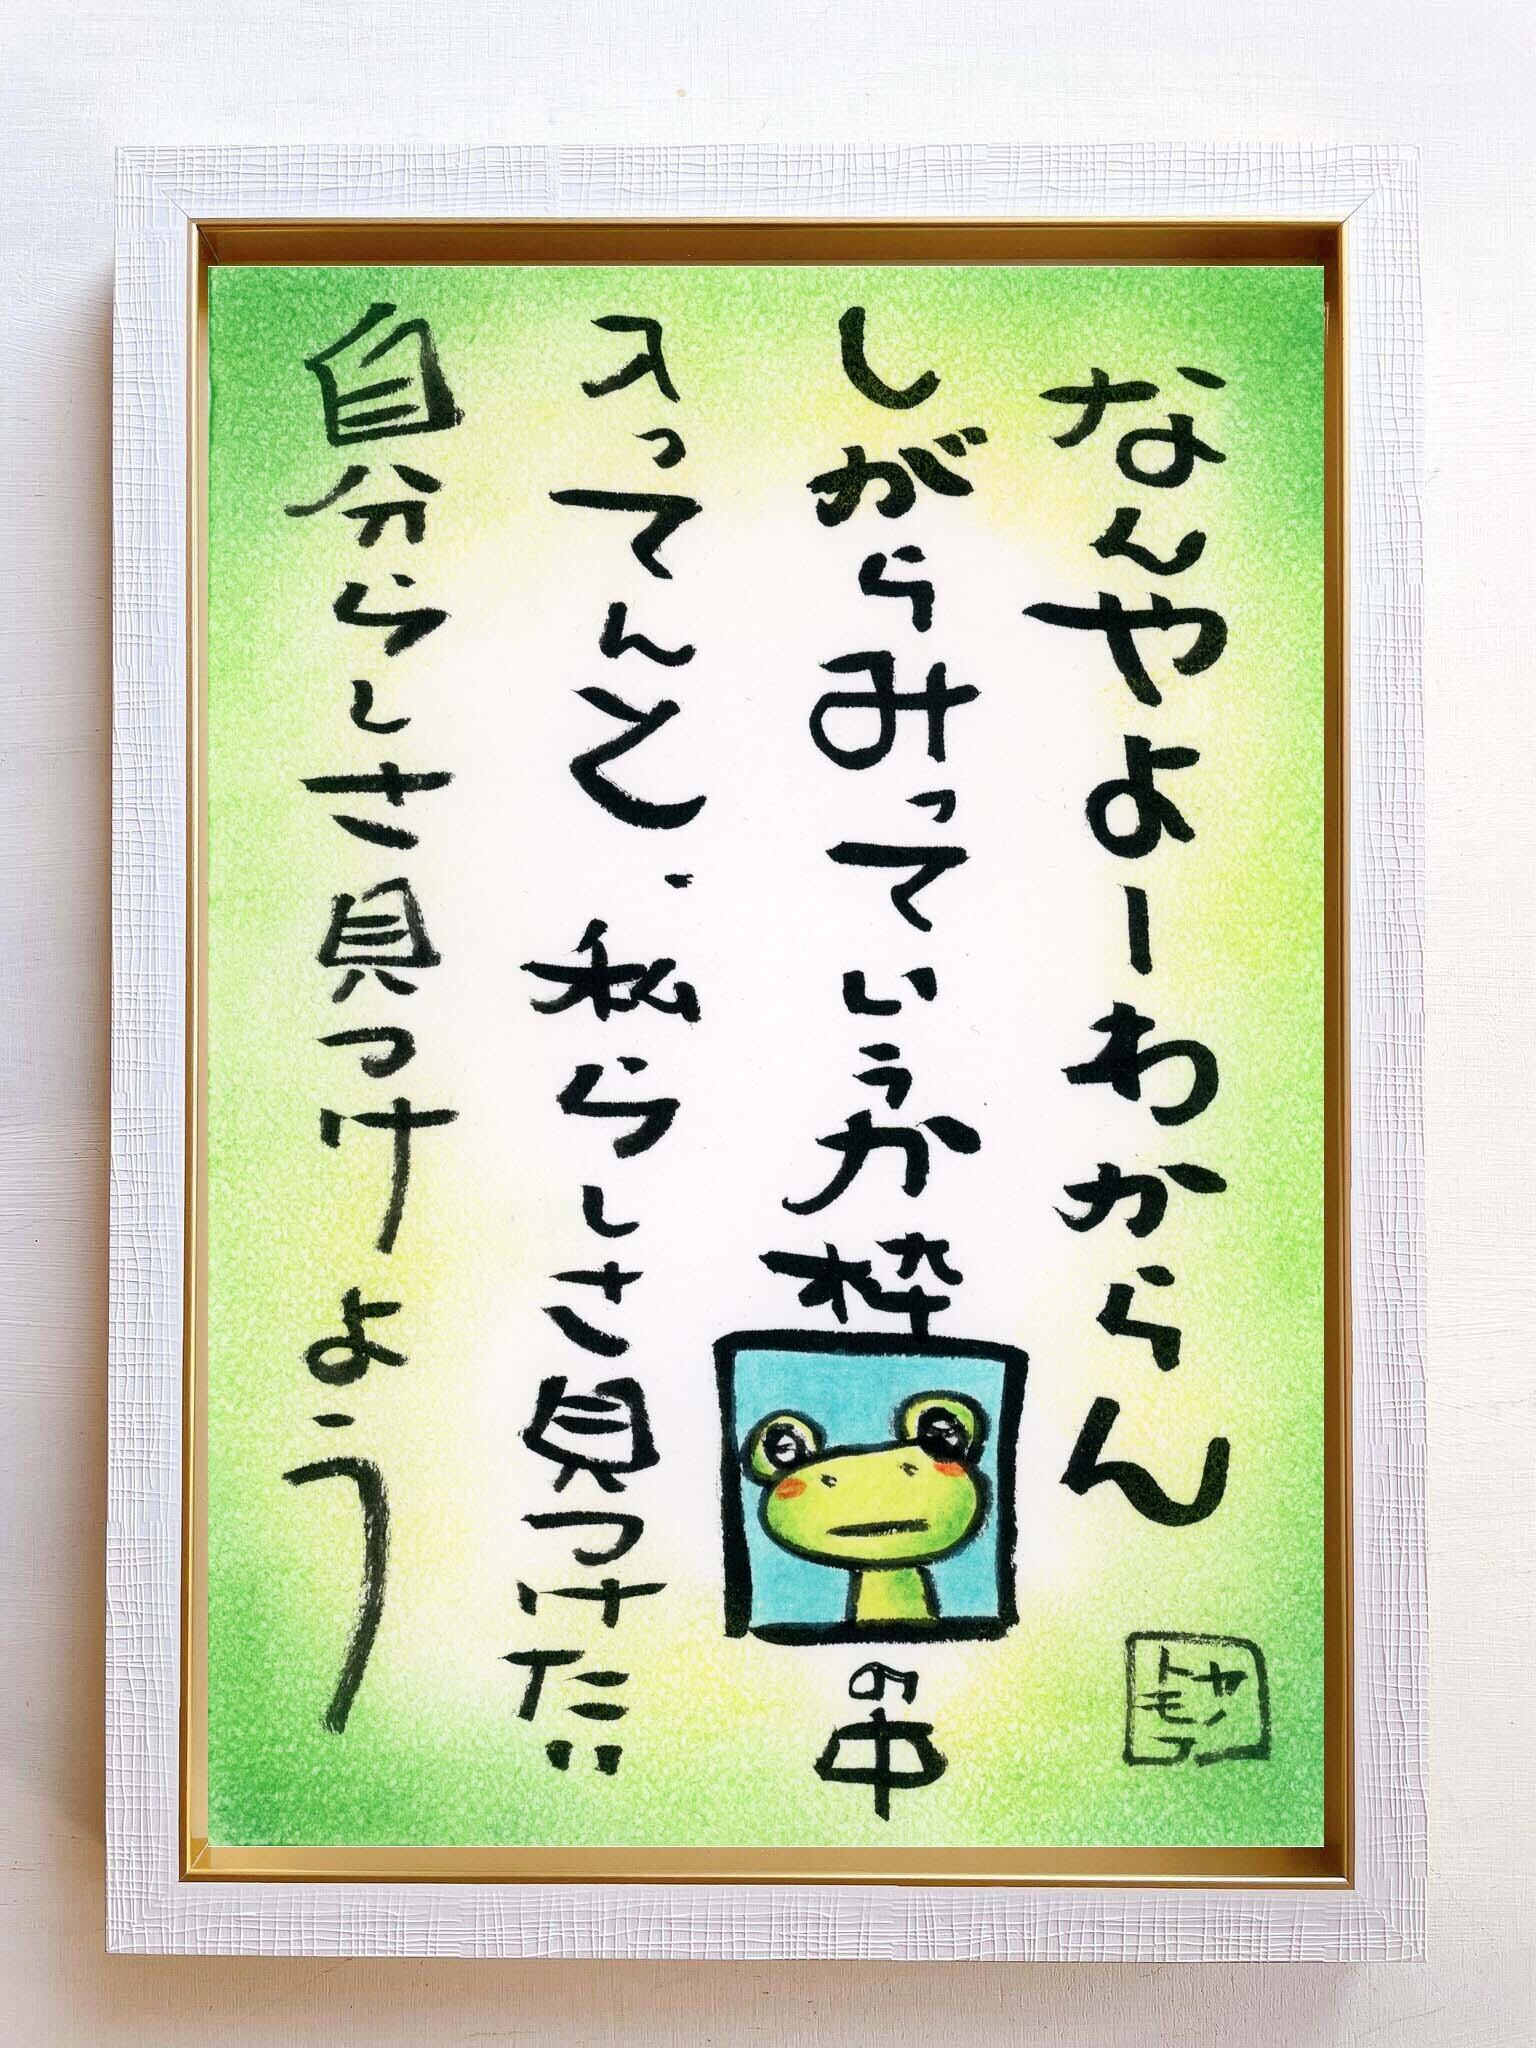 なんやよーわからん
しがらみっていうか枠の中
入ってんと、私らしさ見つけた!!
自分らしさ見つけよう
カノ
トモコ